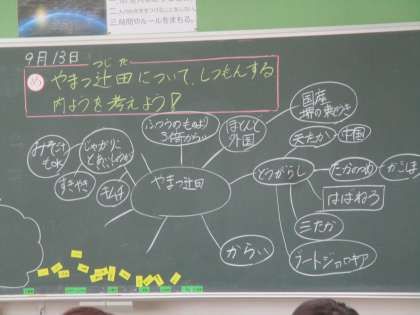 三、時間やルールをまもる。
9月13日
つじ た
め やまつ辻田について、しつもんする
内ようを考えよう!
ふつうのものより
3倍からい
ほとんど
外国
国産
堺の
天たか
中国
じゃがりこ
みそ
すきやき
キムチ
やまつ辻田
とうがらし
たかのつめ
かごしま
はばねろ
三たか
からい
ブートジョロキア